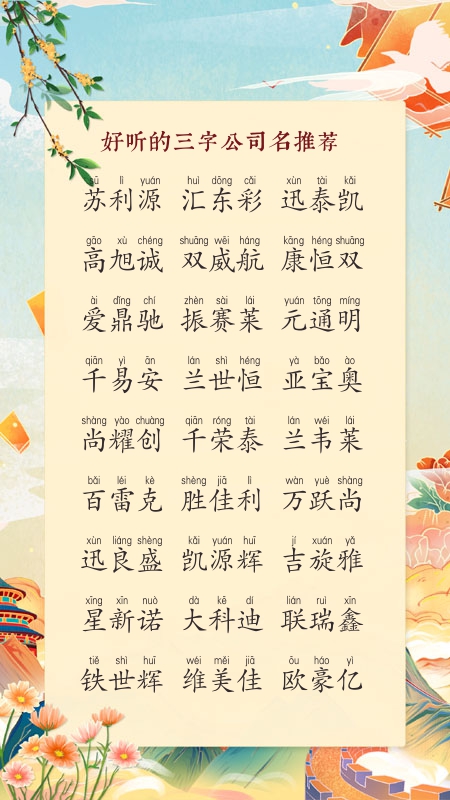 好听的三字公司名推荐
sū lì yuán huì dōng cǎi xùn tài kǎi
苏利源 汇东彩 迅泰凯
gāo xù chéng shuāng wēi háng kāng héng shuāng
高旭诚 双威航 康恒双
ài dǐng chí zhèn sài lái yuán tōng míng
爱鼎驰 振赛莱 元通明
qiān yì ān lán shì héng yà bǎo ào
千易安 兰世恒 亚宝奥
shàng yào chuàng qiān róng tài lán wéi lái
尚耀创 千荣泰 兰韦莱
bǎi léi kè shèng jiā lì wàn yuè shàng
百雷克 胜佳利 万跃尚
xùn liáng shèng kǎi yuán huī jí xuán yǎ
迅良盛 凯源辉 吉旋雅
xīng xīn nuò dà kē dí lián ruì xīn
星新诺 大科迪 联瑞鑫
tiě shì huī wéi měi jiā ōu háo yì
铁世辉 维美佳 欧豪亿